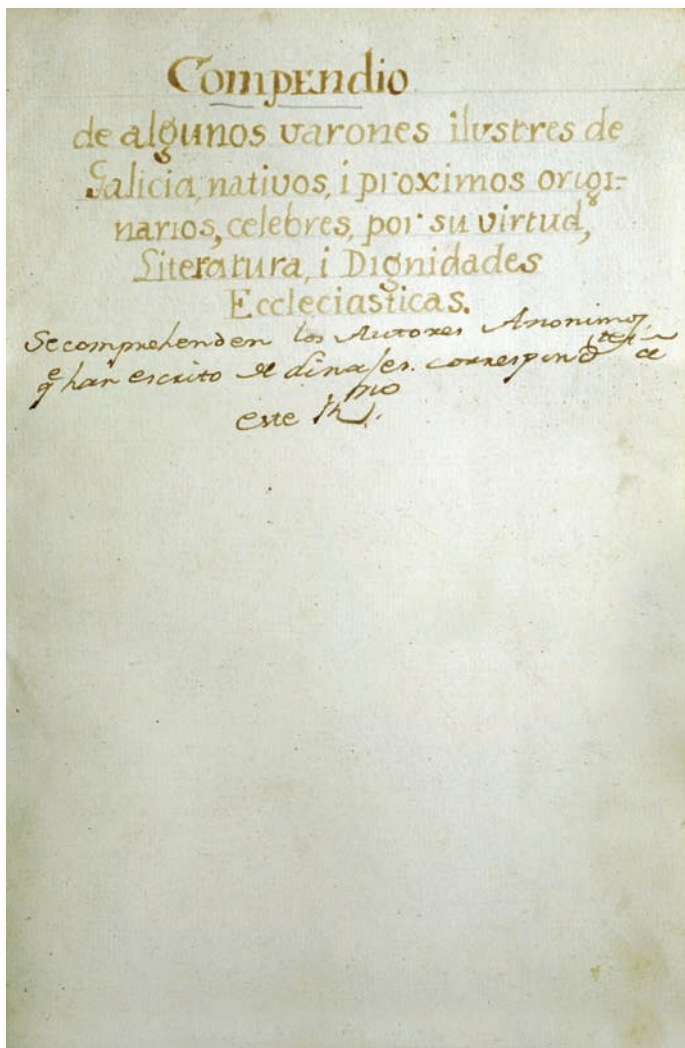 Compendio
de algunos varones ilustres de
Galicia, nativos, i proximos origi-
narios, celebres, por su virtud,
Literatura, i Dignidades
Eccleciasticas.
Se comprehenden los Autores Anonimos,
qe han escrito correspondtes a
este Rno.